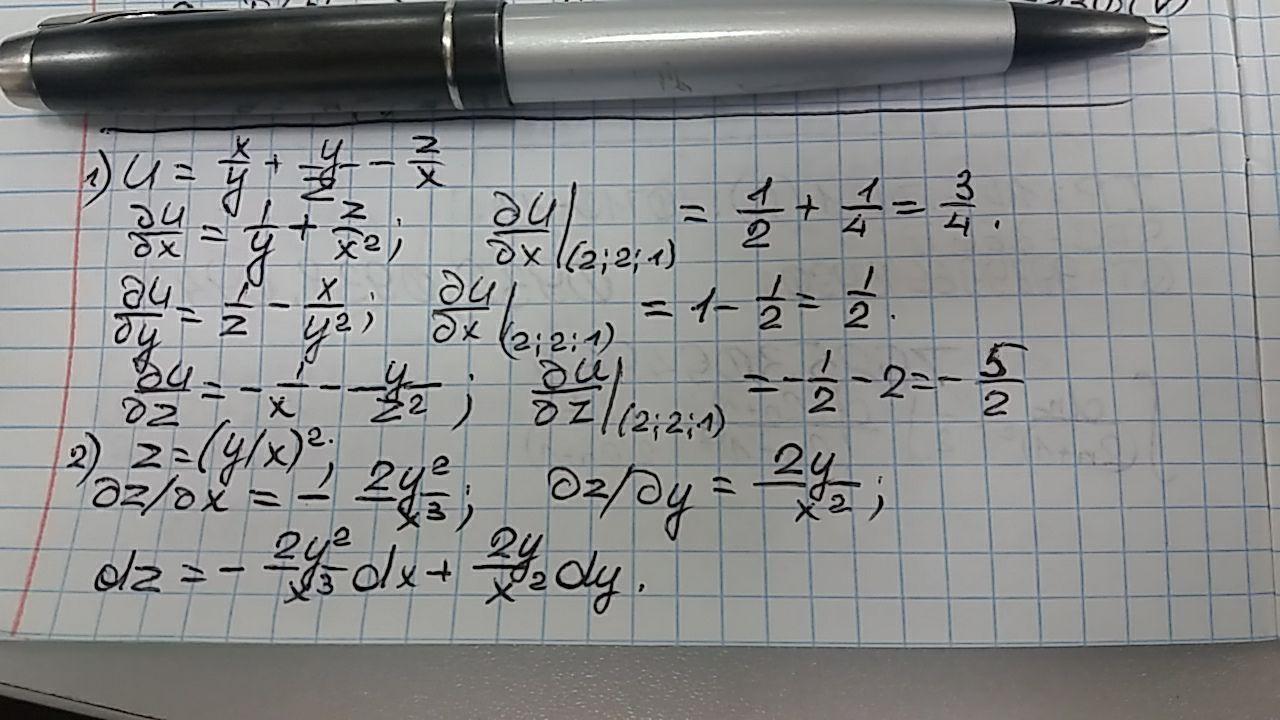 1) u = x/y + y/z - z/x
∂u/∂x = 1/y + z/x²; ∂u/∂x|(2;2;1) = 1/2 + 1/4 = 3/4.
∂u/∂y = 1/z - x/y²; ∂u/∂x|(2;2;1) = 1 - 1/2 = 1/2.
∂u/∂z = -1/x - y/z²; ∂u/∂z|(2;2;1) = -1/2 - 2 = -5/2
2) z = (y/x)²;
∂z/∂x = - 2y²/x³; ∂z/∂y = 2y/x²;
dz = - 2y²/x³ dx + 2y/x² dy.